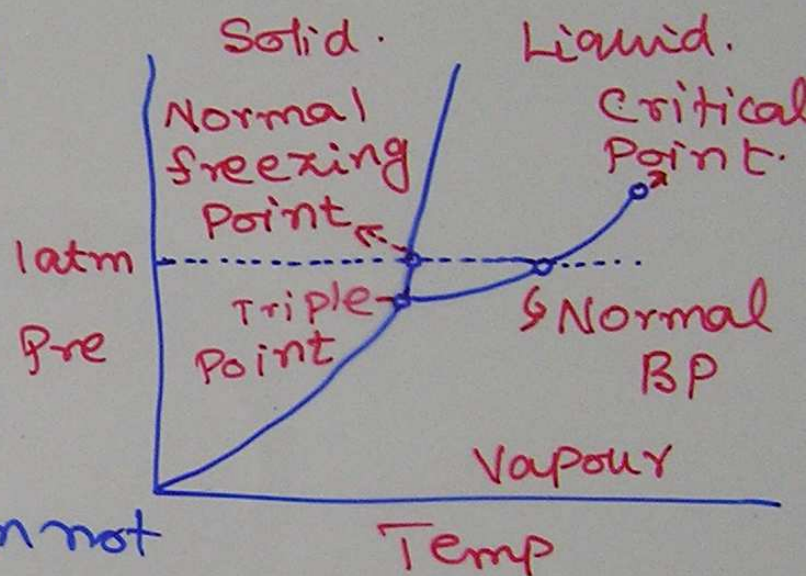 Solid. Liquid.
Normal
freezing
Point
Critical
Point.
1atm
Triple
Point
Normal
BP
Pre
Vapour
n not
Temp